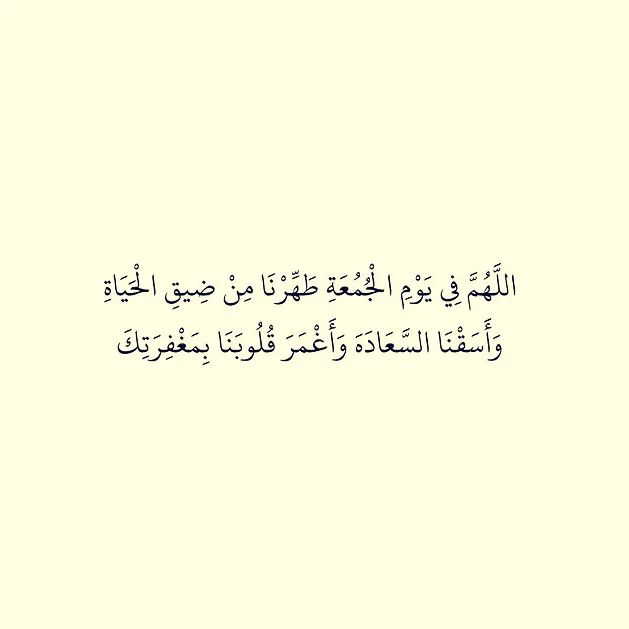 اللَّهُمَّ فِي يَوْمِ الْجُمُعَةِ طَهِّرْنَا مِنْ ضِيقِ الْحَيَاةِ
وَأَسَقْنَا السَّعَادَهَ وَأَغْمَرَ قُلُوبَنَا بِمَغْفِرَتِكَ